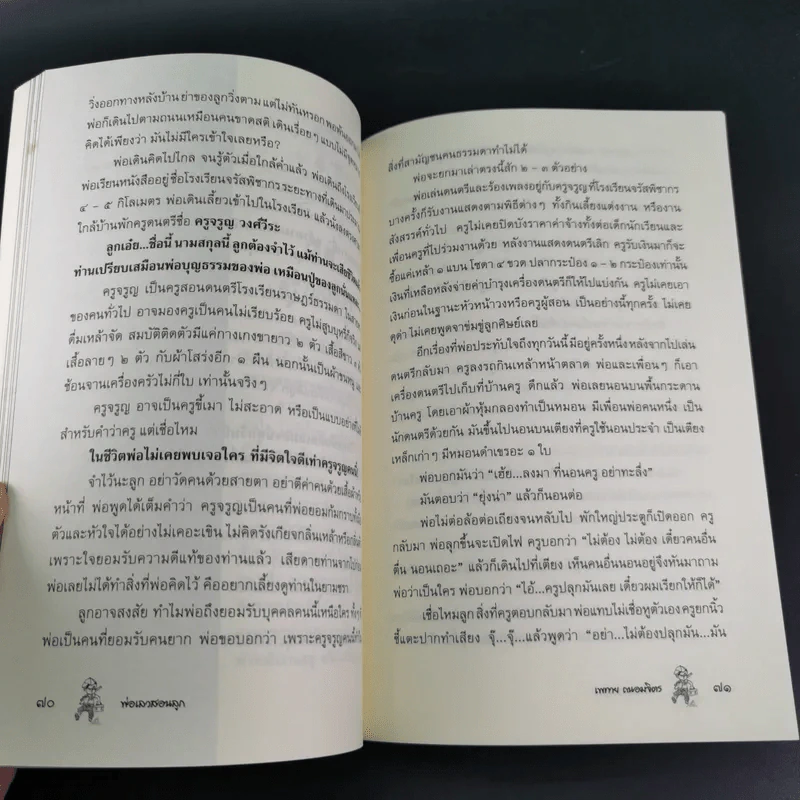 วิ่งออกทางหลังบ้าน ย่าของลูกวิ่งตาม แต่ไม่ทันหรอก พ่อ
พ่อก็เดินไปตามถนนเหมือนคนขาดสติ เดินเรื่อยๆ แบบไม่มี
คิดได้เพียงว่า มันไม่มีใครเข้าใจเลยหรือ?
พ่อเดินคิดไปไกล จนรู้ตัวเมื่อใกล้ค่ำแล้ว พ่อเดินถึง
พ่อเรียนหนังสืออยู่ชื่อโรงเรียนจรัสพิชากร ระยะทางที่เดินมา
๔ – ๕ กิโลเมตร พ่อเดินเลี้ยวเข้าไปในโรงเรียน แล้วนั่งลง
ใกล้บ้านพักครูดนตรีชื่อ ครูจรูญ วงศ์วีระ
ลูกเอ๋ย...ชื่อนี้ นามสกุลนี้ ลูกต้องจำไว้ แม้ท่านจะเสีย
ท่านเปรียบเสมือนพ่อบุญธรรมของพ่อ เหมือนปู่ของลูก
ครูจรูญ เป็นครูสอนดนตรีโรงเรียนราษฎร์ธรรมดา ใน
ของคนทั่วไป อาจมองครูเป็นคนไม่เรียบร้อย ครูไม่สูบบุหรี่
ดื่มเหล้าจัด สมบัติติดตัวมีแค่กางเกงขายาว ๒ ตัว เสื้อสีขาว
เสื้อลายๆ ๒ ตัว กับผ้าโสร่งอีก ๑ ผืน นอกนั้นเป็นผ้าขนหนู
ช้อนจานเครื่องครัวไม่กี่ใบ เท่านั้นจริงๆ
ครูจรูญ อาจเป็นครูขี้เมา ไม่สะอาด หรือเป็นแบบอย่าง
สำหรับคำว่าครู แต่เชื่อไหม
ในชีวิตพ่อไม่เคยพบเจอใคร ที่มีจิตใจดีเท่าครูจรูญ
จำไว้นะลูก อย่าวัดคนด้วยสายตา อย่าตีค่าคนด้วยเสื้อผ้า
หน้าที่ พ่อพูดได้เต็มคำว่า ครูจรูญเป็นคนที่พ่อยอมก้มกราบ
ตัวและหัวใจได้อย่างไม่เคอะเขิน ไม่คิดรังเกียจกลิ่นเหล้าหรือกลิ่น
เพราะใจยอมรับความดีแท้ของท่านแล้ว เสียดายท่านจาก
พ่อเลยไม่ได้ทำสิ่งที่พ่อคิดไว้ คืออยากเลี้ยงดูท่านในยามชรา
ลูกอาจสงสัย ทำไมพ่อถึงยอมรับบุคคลคนนี้เหนือใคร ทั้งๆ
พ่อเป็นคนที่ยอมรับคนยาก พ่อขอบอกว่า เพราะครูจรูญคนนี้
๗๐
พ่อเลวสอนลูก
สิ่งที่สามัญชนคนธรรมดาทำไม่ได้
พ่อจะยกมาเล่าตรงนี้สัก ๒ – ๓ ตัวอย่าง
พ่อเล่นดนตรีและร้องเพลงอยู่กับครูจรูญที่โรงเรียนจรัสพิชากร
บางครั้งก็รับงานแสดงตามพิธีต่างๆ ทั้งกินเลี้ยงแต่งงาน หรืองาน
สังสรรค์ทั่วไป ครูไม่เคยปิดบังราคาค่าจ้างทั้งต่อเด็กนักเรียนและ
เพื่อนครูที่ไปร่วมงานด้วย หลังงานแสดงดนตรีเลิก ครูรับเงินมาก็จะ
ซื้อแค่เหล้า ๑ แบน โซดา ๔ ขวด ปลากระป๋อง ๑ – ๒ กระป๋องเท่านั้น
เงินที่เหลือหลังจ่ายค่าบำรุงเครื่องดนตรีก็ให้ไปแบ่งกัน ครูไม่เคยเอา
เงินก่อนในฐานะหัวหน้าวงหรือครูผู้สอน เป็นอย่างนี้ทุกครั้ง ไม่เคย
ดุด่า ไม่เคยพูดจาข่มขู่ลูกศิษย์เลย
อีกเรื่องที่พ่อประทับใจถึงทุกวันนี้มีอยู่ครั้งหนึ่งหลังจากไปเล่น
ดนตรีกลับมา ครูลงรถกินเหล้าหน้าตลาด พ่อและเพื่อนๆ ก็เอา
เครื่องดนตรีไปเก็บที่บ้านครู ดึกแล้ว พ่อเลยนอนบนพื้นกระดาน
บ้านครู โดยเอาผ้าหุ้มกลองทำเป็นหมอน มีเพื่อนพ่อคนหนึ่ง เป็น
นักดนตรีด้วยกัน มันขึ้นไปนอนบนเตียงที่ครูใช้นอนประจำ เป็นเตียง
เหล็กเก่าๆ มีหมอนดำเขรอะ ๑ ใบ
พ่อบอกมันว่า “เฮ้ย...ลงมา ที่นอนครู อย่าทะลึ่ง”
มันตอบว่า “ยุ่งน่า” แล้วก็นอนต่อ
พ่อไม่ต่อล้อต่อเถียงจนหลับไป พักใหญ่ประตูก็เปิดออก ครู
กลับมา พ่อลุกขึ้นจะเปิดไฟ ครูบอกว่า “ไม่ต้อง ไม่ต้อง เดี๋ยวคนอื่น
ตื่น นอนเถอะ” แล้วก็เดินไปที่เตียง เห็นคนอื่นนอนอยู่จึงหันมาถาม
พ่อว่าเป็นใคร พ่อบอกว่า “ไอ้...ครูปลุกมันเลย เดี๋ยวผมเรียกให้ก็ได้”
เชื่อไหมลูก สิ่งที่ครูตอบกลับมา พ่อแทบไม่เชื่อหูตัวเอง ครูยกนิ้ว
ชี้แตะปากทำเสียง จุ๊...จุ๊...แล้วพูดว่า “อย่า...ไม่ต้องปลุกมัน...มัน
เทพทาย ถนอมจิตร
๗๑